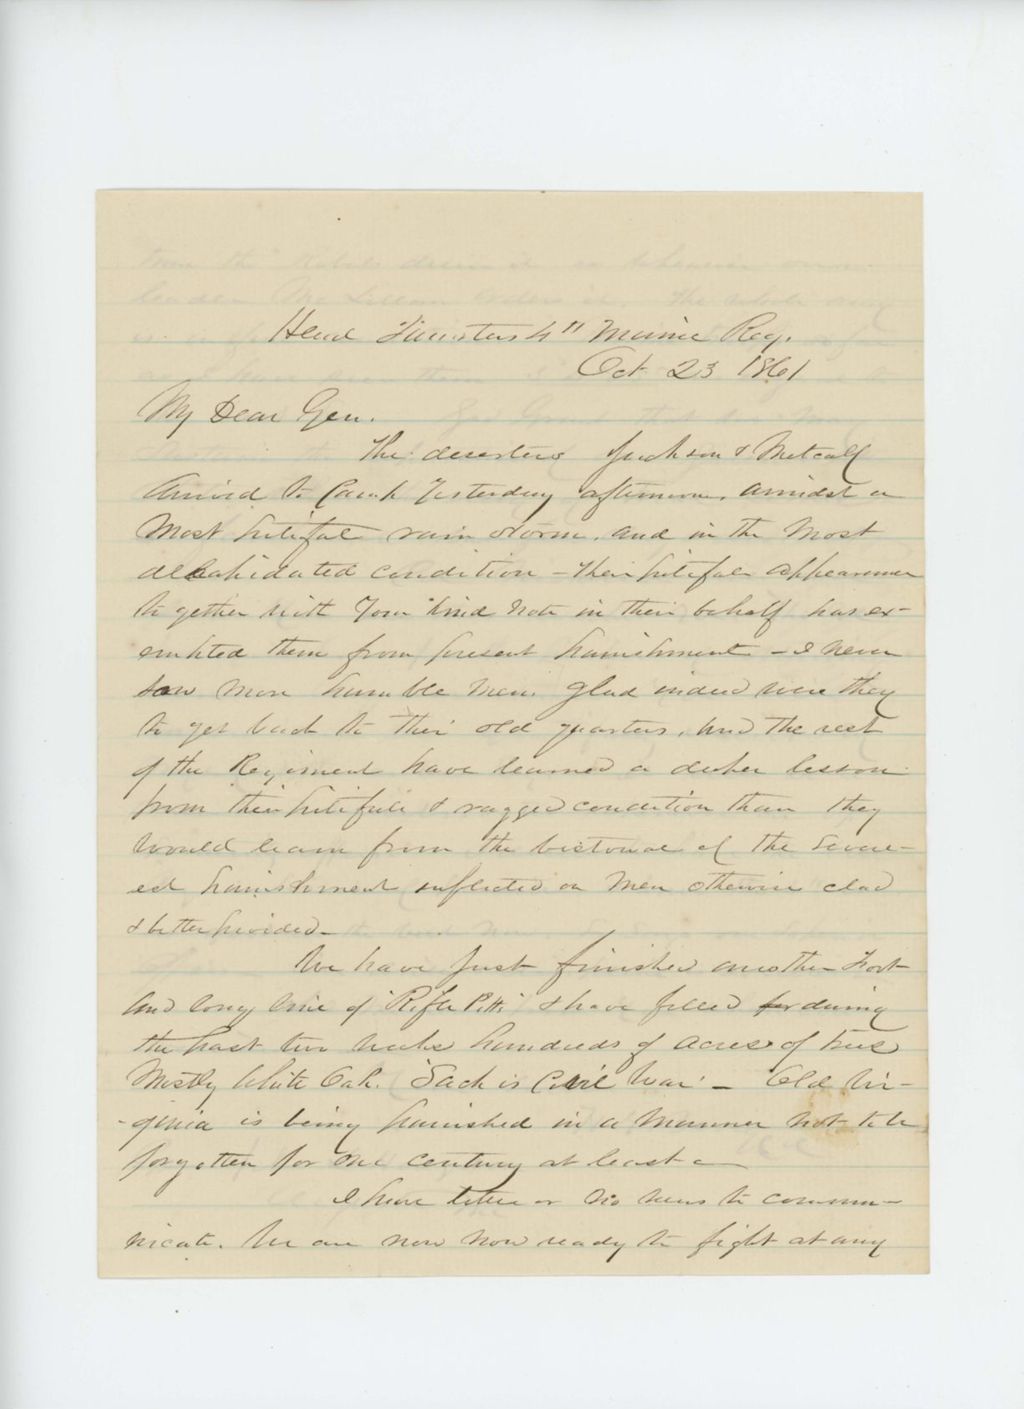 Head Quarters 4" Maine Reg.
Oct 23 1861
My Dear Gen.
The deserters Jackson & Metcalf
Arrived to Camp Yesterday afternoon, amidst a
Most pitiful rain storm, and in the Most
delapidated condition – Their pitiful appearance
to gether with Your kind note in their behalf has ex-
empted them from present punishment – I never
saw more humble men. Glad indeed were they
to get back to their old quarters, And the rest
of the Regiment have learned a deeper lesson
from their pitiful & ragged condition than they
Would learn from the of the sever-
est punishment inflicted on Men otherwise clad
& better provided –
We have just finished another Fort
And long line of "Rifle Pitts" & have felled for during
the past two weeks hundreds of acres of trees
Mostly White Oak. Such is Civil War – Old Vir-
-ginia is being punished in a Manner not to be
forgotten for one century at least –
I have little or no news to commu-
nicate. We are now now ready to fight at any